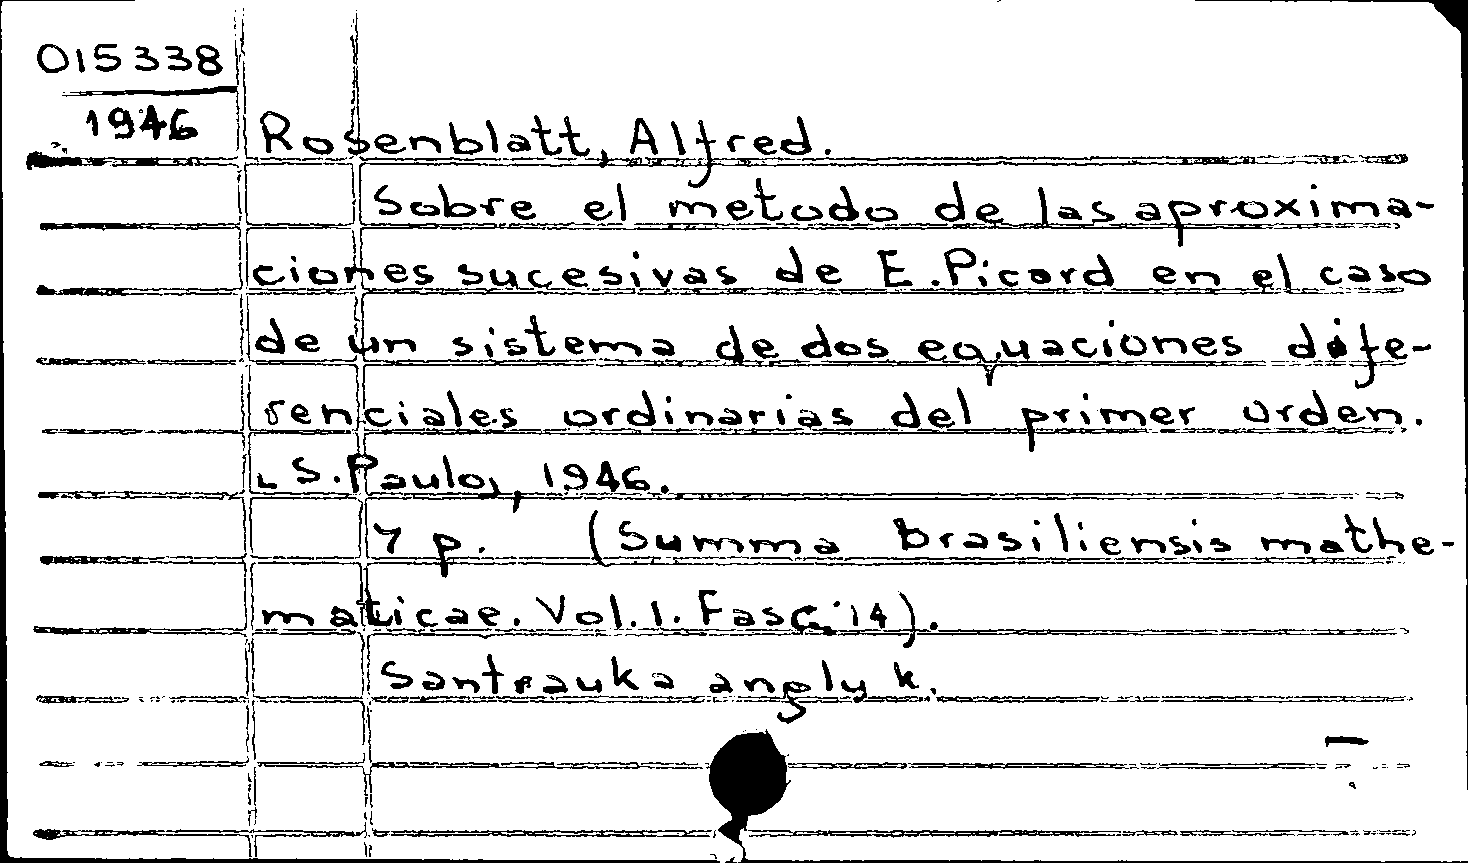 015338
1946
Rosenblatt, Alfred.
Sobre el metodo de las aproxima-
ciones sucesivas de E. Picard en el caso
de un sistema de dos equaciones dife-
renciales ordinarias del primer orden.
S. Paulo, 1946.
7 p. (Summa Brasiliensis mathe-
maticae. Vol. 1. Fasc. 14).
Santrauka anglų k.